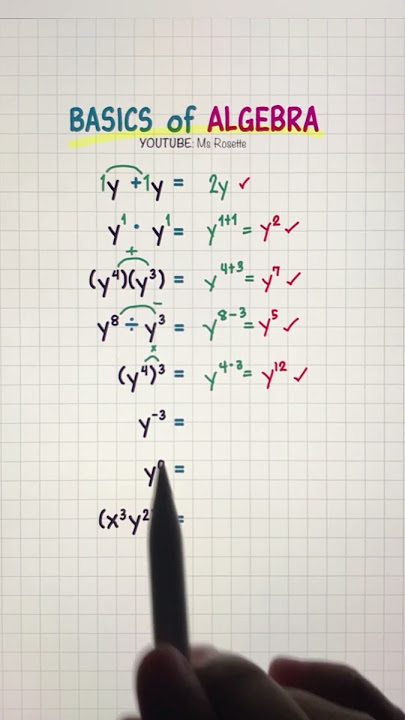 BASICS of ALGEBRA
YOUTUBE: Ms Rosette
1y + 1y = 2y ✓
y¹ · y¹ = y¹⁺¹ = y² ✓
+
(y⁴)(y³) = y⁴⁺³ = y⁷ ✓
−
y⁸ ÷ y³ = y⁸⁻³ = y⁵ ✓
×
(y⁴)³ = y⁴·³ = y¹² ✓
y⁻³ =
y =
(x³y² =